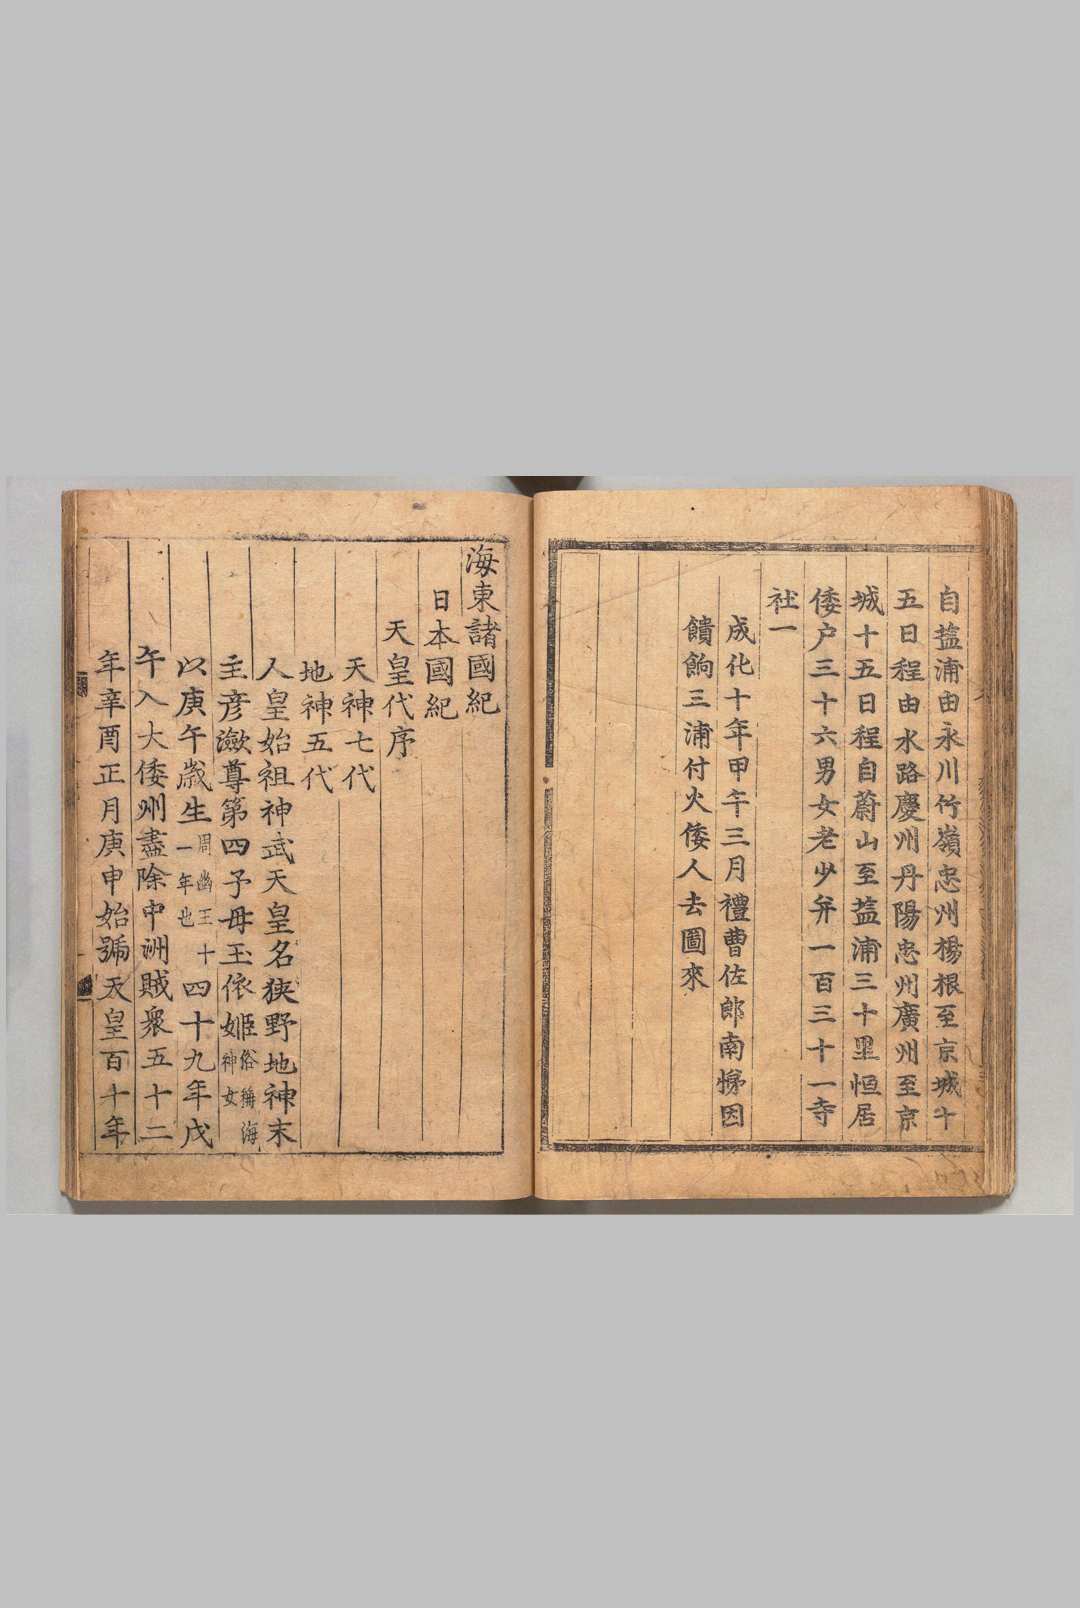 自盐浦由永川竹嶺忠州楊根至京城十
五日程由水路慶州丹陽忠州廣州至京
城十五日程自蔚山至盐浦三十里恒居
倭户三十六男女老少弁一百三十一寺
社一
成化十年甲午三月禮曹佐郎南悌因
饋餉三浦付火倭人去圖來
海東諸國紀
日本國紀
天皇代序
天神七代
地神五代
人皇始祖神武天皇名狹野地神末
主彦瀲尊第四子母玉依姬俗稱海神女
以庚午歲生周幽王十一年也四十九年戊
午入大倭州盡除中洲賊衆五十二
年辛酉正月庚申始號天皇百十年